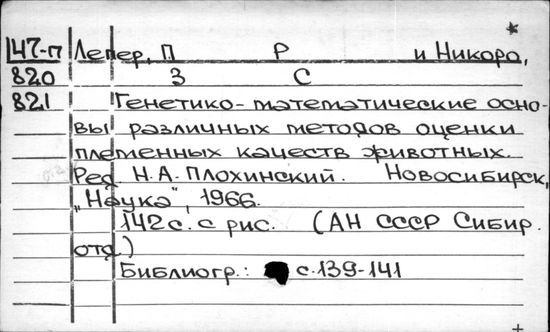 147-п Лепер, П Р и Никоро,
820 З С
821 Генетико-математические осно-
вы различных методов оценки
племенных качеств животных.
Ред Н.А. Плохинский. Новосибирск,
„Наука", 1966.
142 с. с рис. (АН СССР Сибир.
отд.)
Библиогр.: с. 139-141